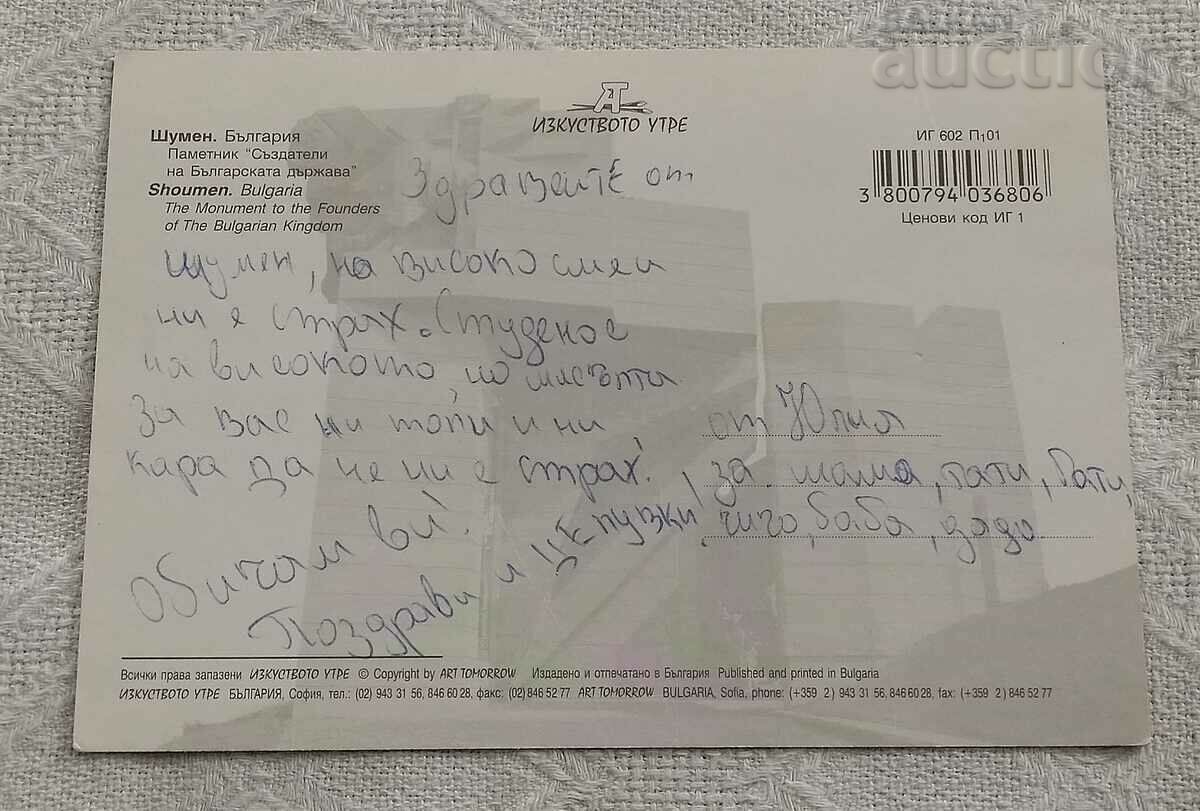 auction
ИЗКУСТВОТО УТРЕ
Шумен. България
Паметник "Създатели
на Българската държава"
Shoumen. Bulgaria
The Monument to the Founders
of The Bulgarian Kingdom
ИГ 602 П101
3 800794 036806
Ценови код ИГ 1
Здравейте от
Шумен, на високо сме и
ни е страх. Студено е
на високото, но мисълта
за вас ни топи и ни
кара да не ни е страх!
Обичам ви!
Поздрави и целувки,
от Юлия
за мама, тати, Бати,
чичо, баба, дядо.
Всички права запазени ИЗКУСТВОТО УТРЕ © Copyright by ART TOMORROW Издадено и отпечатано в България Published and printed in Bulgaria
ИЗКУСТВОТО УТРЕ БЪЛГАРИЯ, София, тел.: (02) 943 31 56, 846 60 28, факс: (02) 846 52 77 ART TOMORROW BULGARIA, Sofia, phone: (+359 2) 943 31 56, 846 60 28, fax: (+359 2) 846 52 77